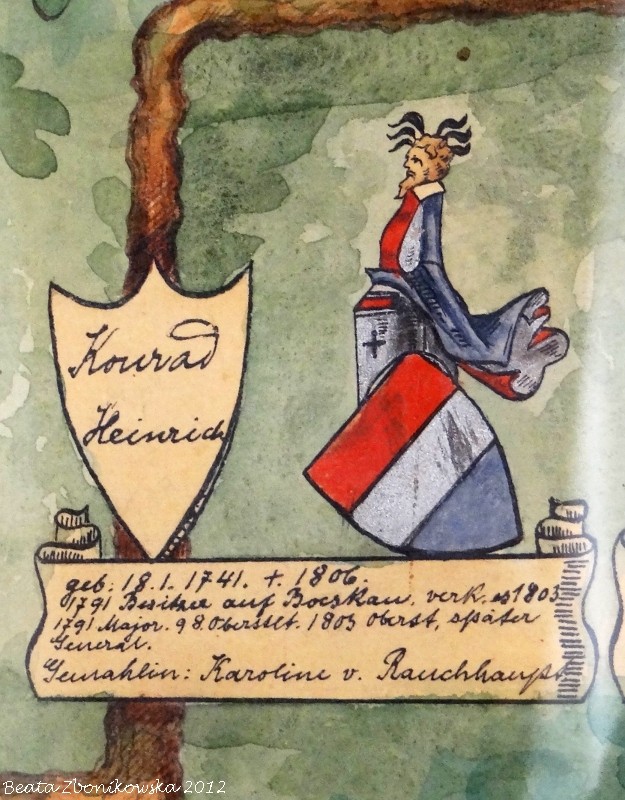 Konrad
Heinrich
geb: 18.1.1741. + 1806.
1791 Besitzer auf Boeskau. verk. es 1803
1791 Major. 98. Oberstlt. 1803 Oberst, später
General.
Gemahlin: Karoline v. Rauchhaupt
Beata Zbonikowska 2012